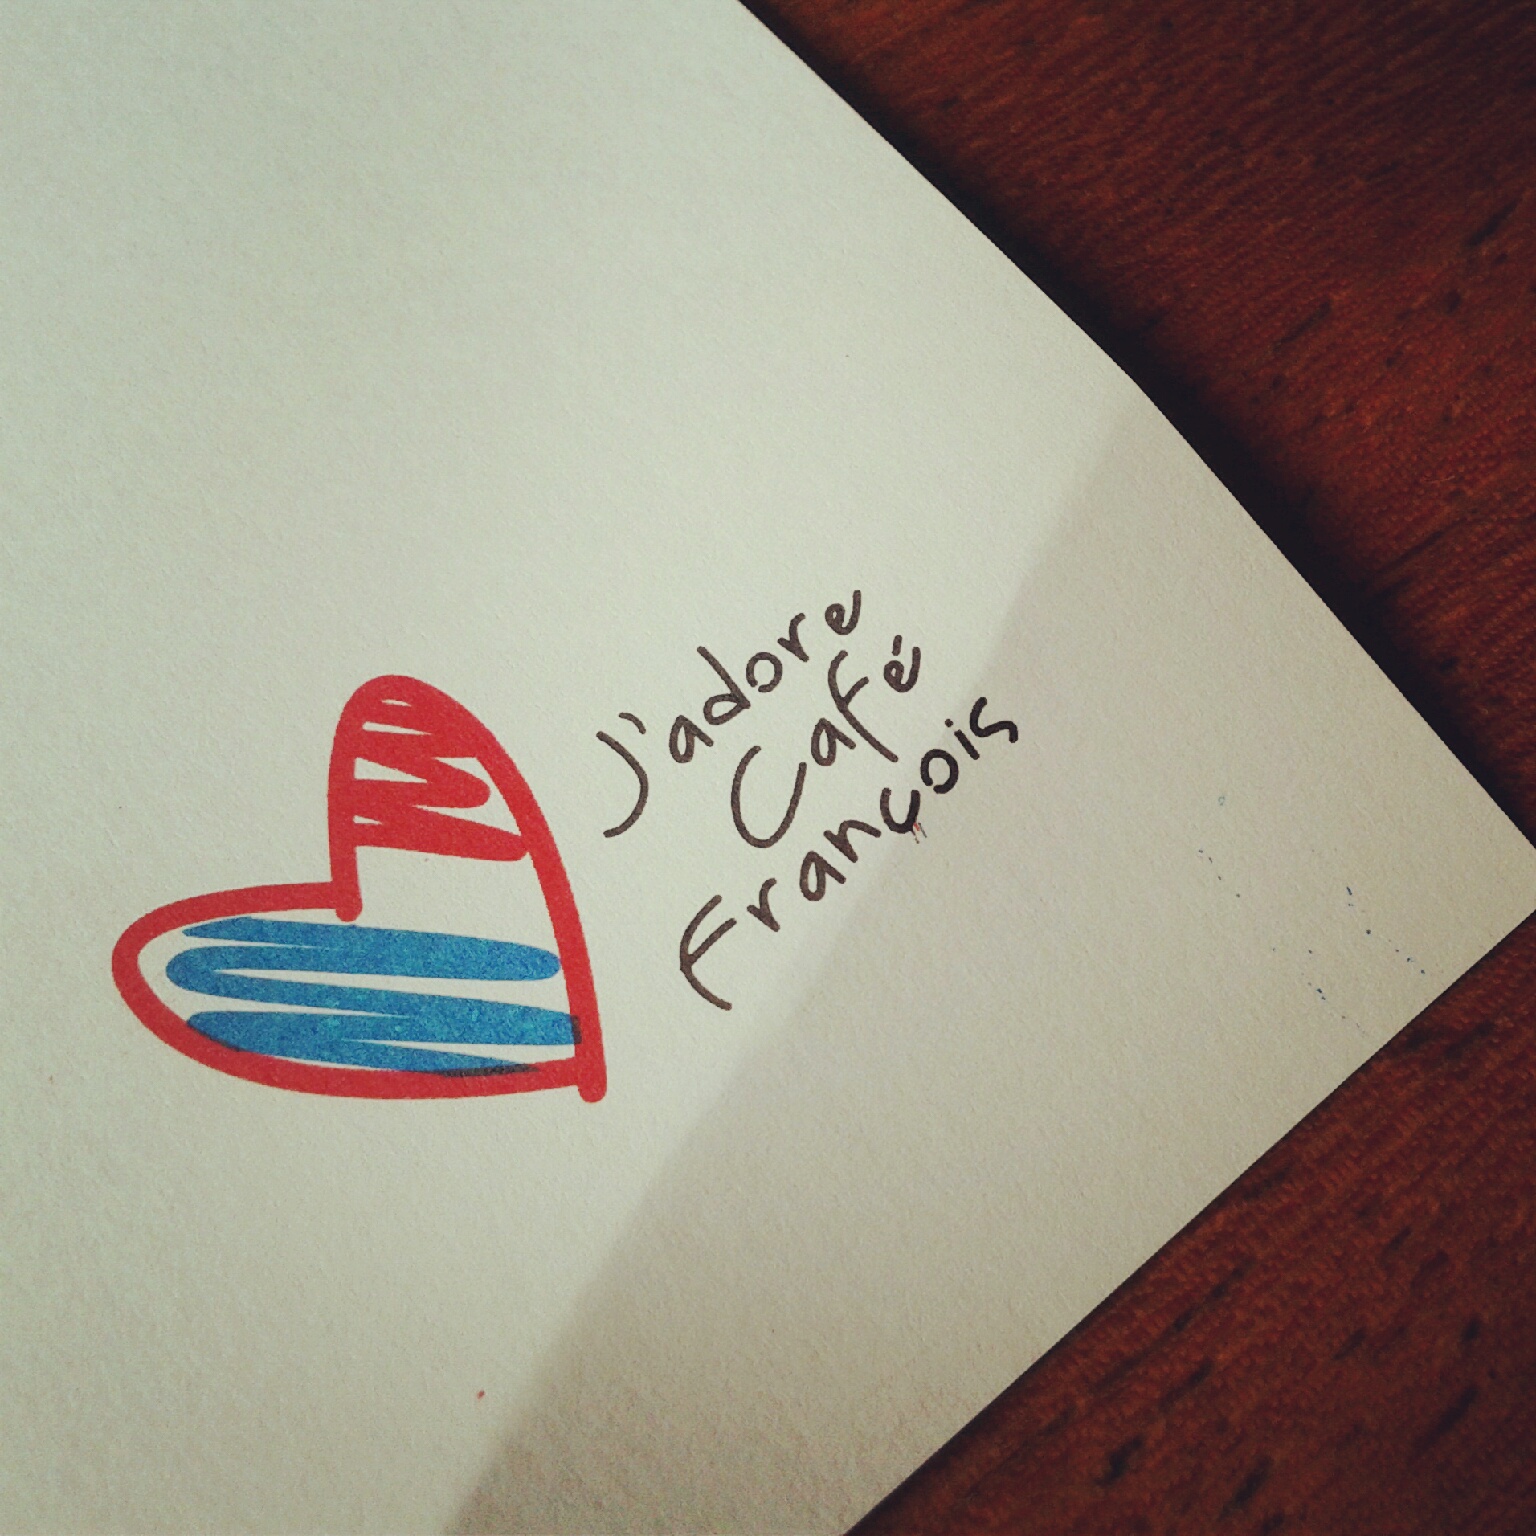 J'adore
Café
François